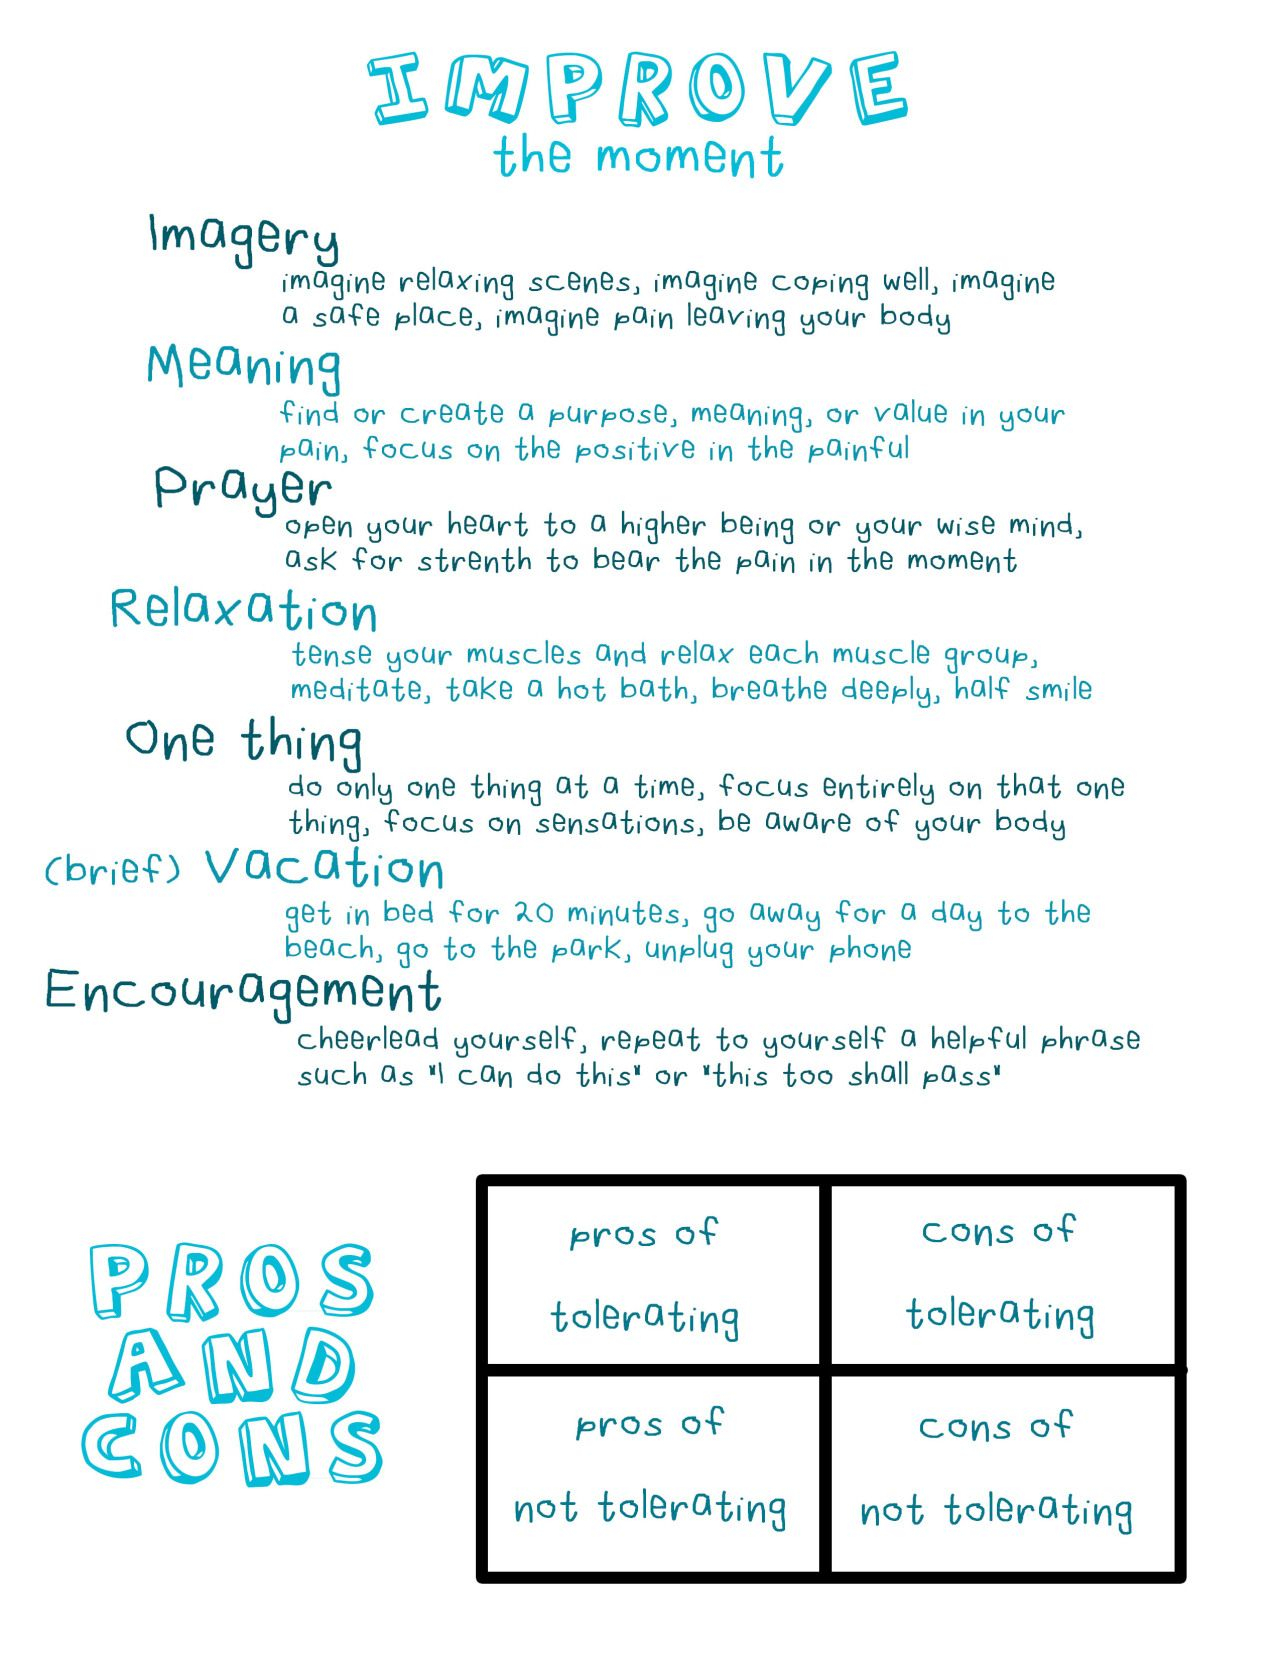 IMPROVE
the moment
Imagery
imagine relaxing scenes, imagine coping well, imagine
a safe place, imagine pain leaving your body
Meaning
find or create a purpose, meaning, or value in your
pain, focus on the positive in the painful
Prayer
open your heart to a higher being or your wise mind,
ask for strenth to bear the pain in the moment
Relaxation
tense your muscles and relax each muscle group,
meditate, take a hot bath, breathe deeply, half smile
One thing
do only one thing at a time, focus entirely on that one
thing, focus on sensations, be aware of your body
(brief) Vacation
get in bed for 20 minutes, go away for a day to the
beach, go to the park, unplug your phone
Encouragement
cheerlead yourself, repeat to yourself a helpful phrase
such as "I can do this" or "this too shall pass"
PROS
AND
CONS
pros of
tolerating
cons of
tolerating
pros of
not tolerating
cons of
not tolerating